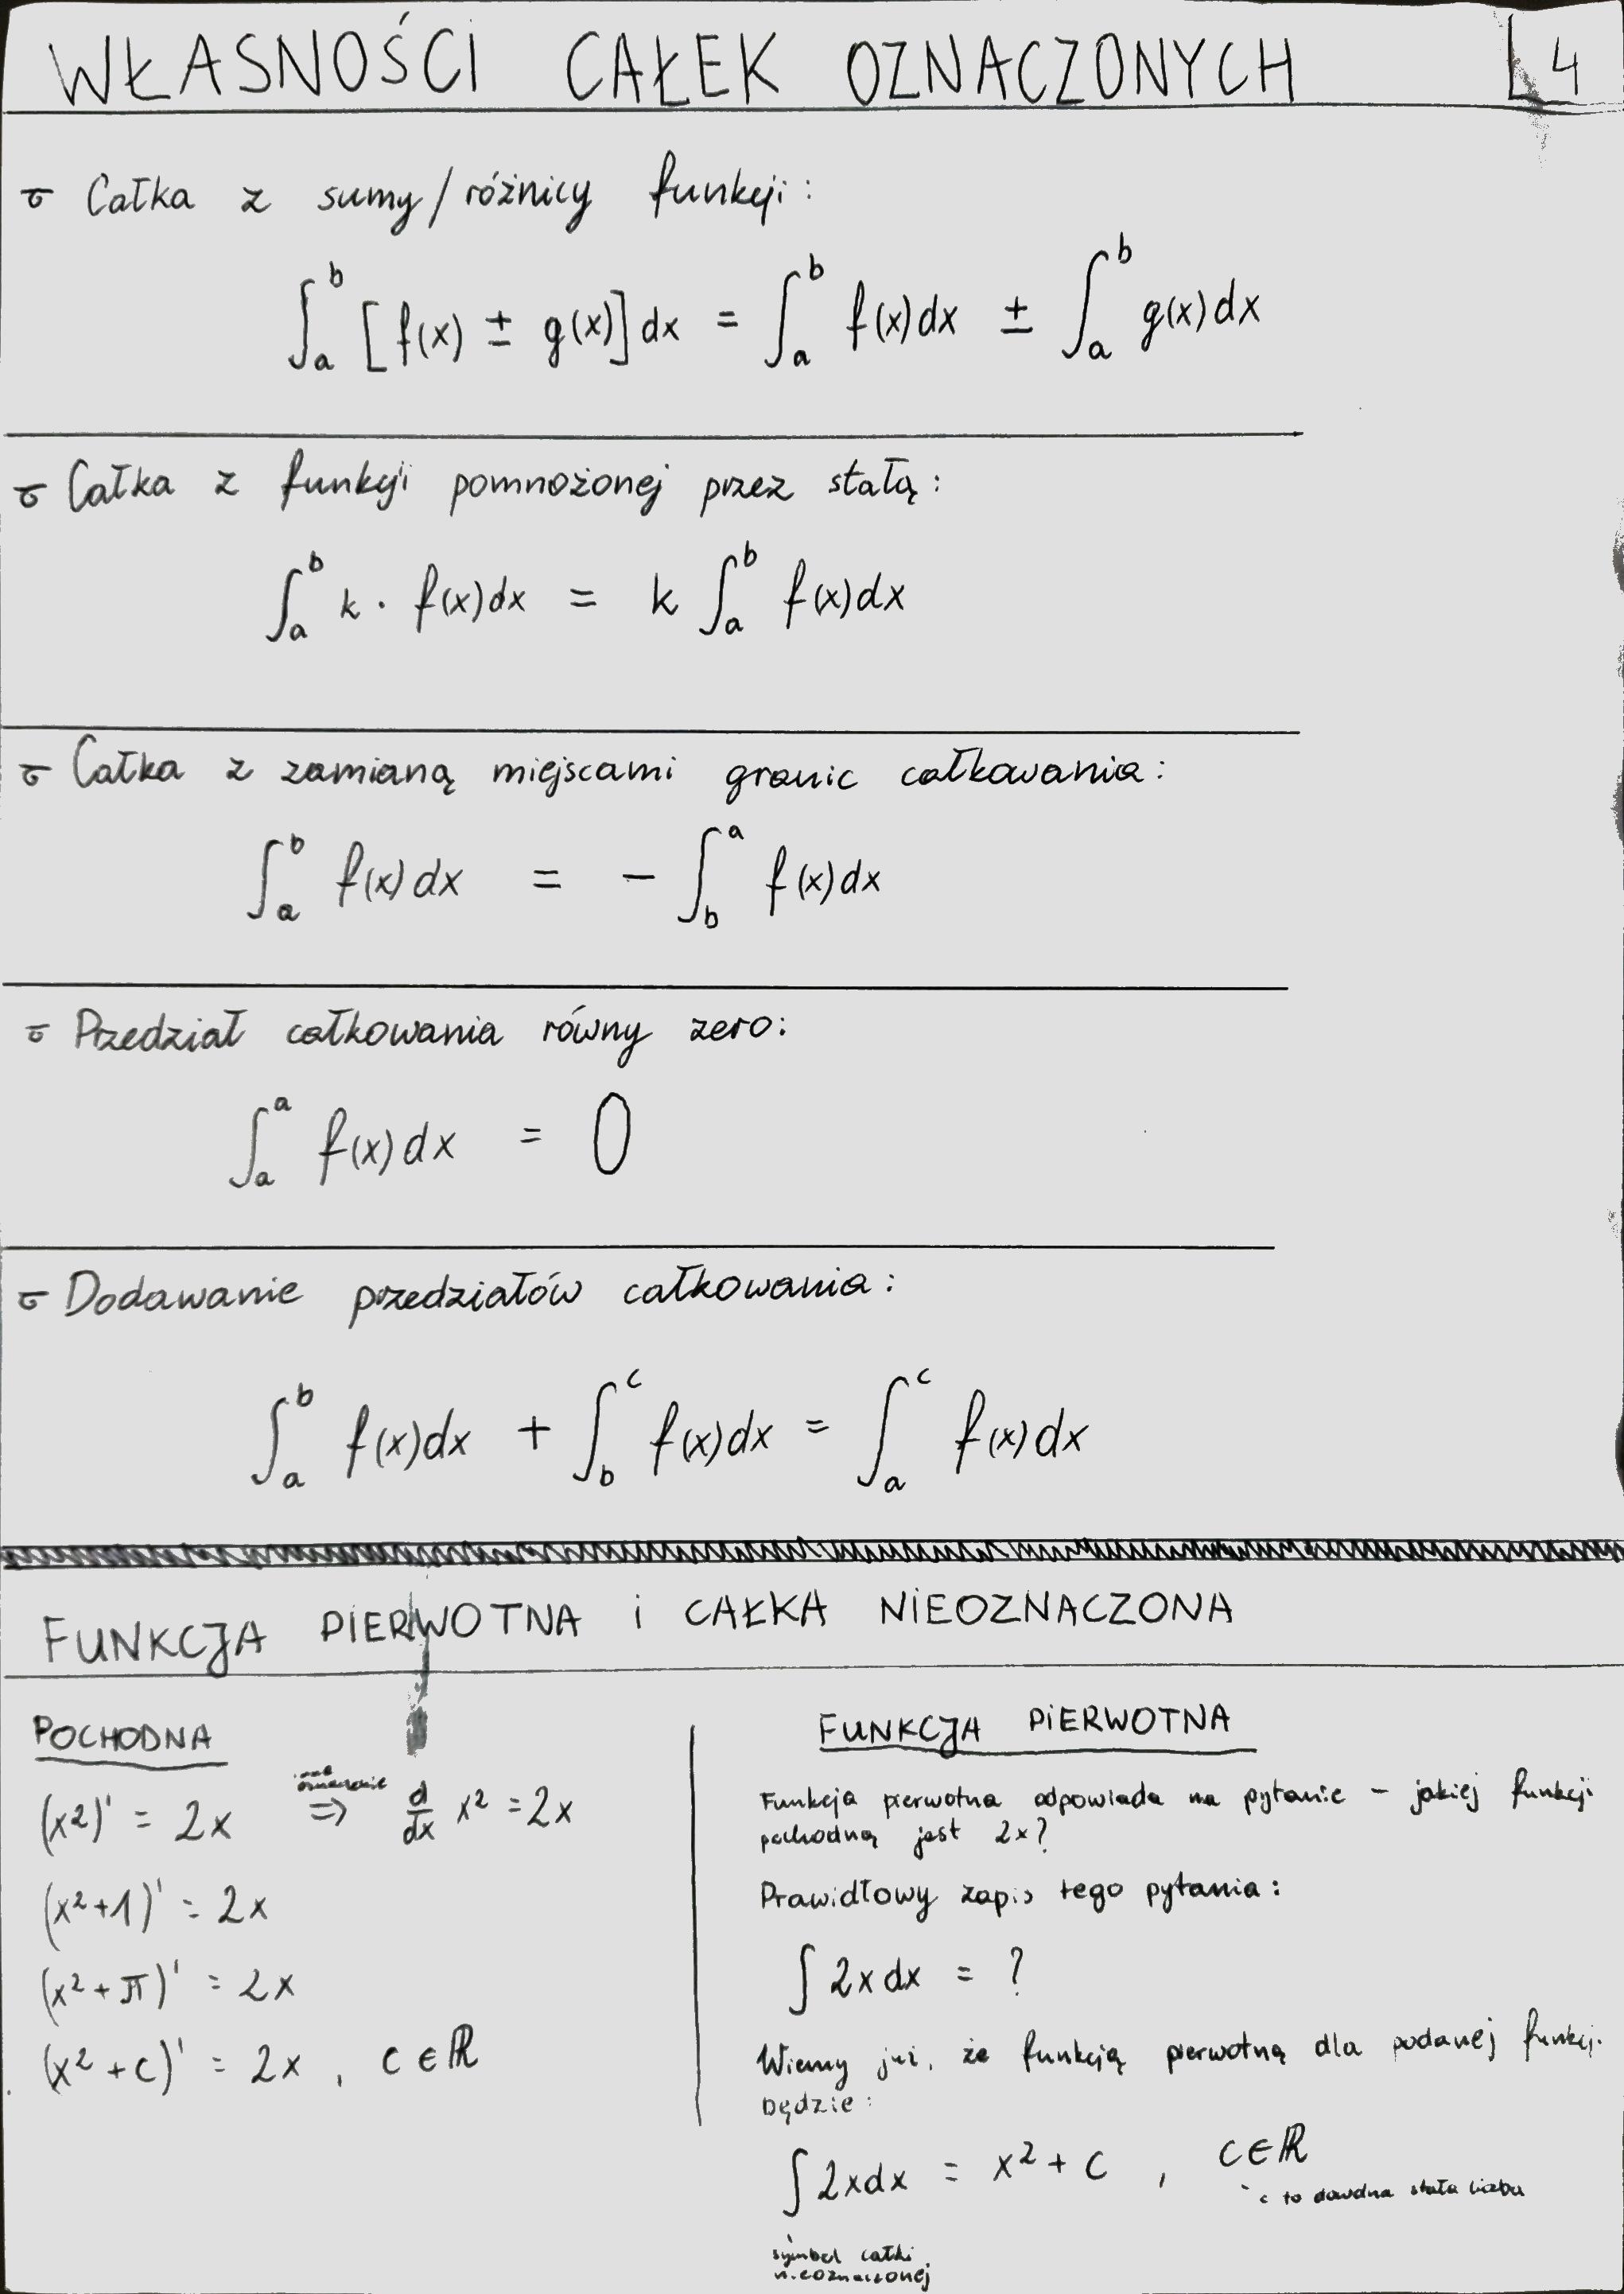 WŁASNOŚCI CAŁEK OZNACZONYCH 4
Całka z sumy/różnicy funkcji:
∫_a^b [f(x) ± g(x)] dx = ∫_a^b f(x)dx ± ∫_a^b g(x)dx
Całka z funkcji pomnożonej przez stałą:
∫_a^b k · f(x)dx = k ∫_a^b f(x)dx
Całka z zamianą miejscami granic całkowania:
∫_a^b f(x)dx = - ∫_b^a f(x)dx
Przedział całkowania równy zero:
∫_a^a f(x)dx = 0
Dodawanie przedziałów całkowania:
∫_a^b f(x)dx + ∫_b^c f(x)dx = ∫_a^c f(x)dx
FUNKCJA PIERWOTNA i CAŁKA NIEOZNACZONA
POCHODNA
inne oznaczenie
(x²)' = 2x ⇒ d/dx x² = 2x
(x²+1)' = 2x
(x²+π)' = 2x
(x²+c)' = 2x, C∈ℝ
FUNKCJA PIERWOTNA
Funkcja pierwotna odpowiada na pytanie – jakiej funkcji
pochodną jest 2x?
Prawidłowy zapis tego pytania:
∫ 2x dx = ?
Wiemy już, że funkcją pierwotną dla podanej funkcji
będzie:
∫ 2xdx = x² + C , C∈ℝ
c to dowolna stała liczba
symbol całki
nieoznaczonej